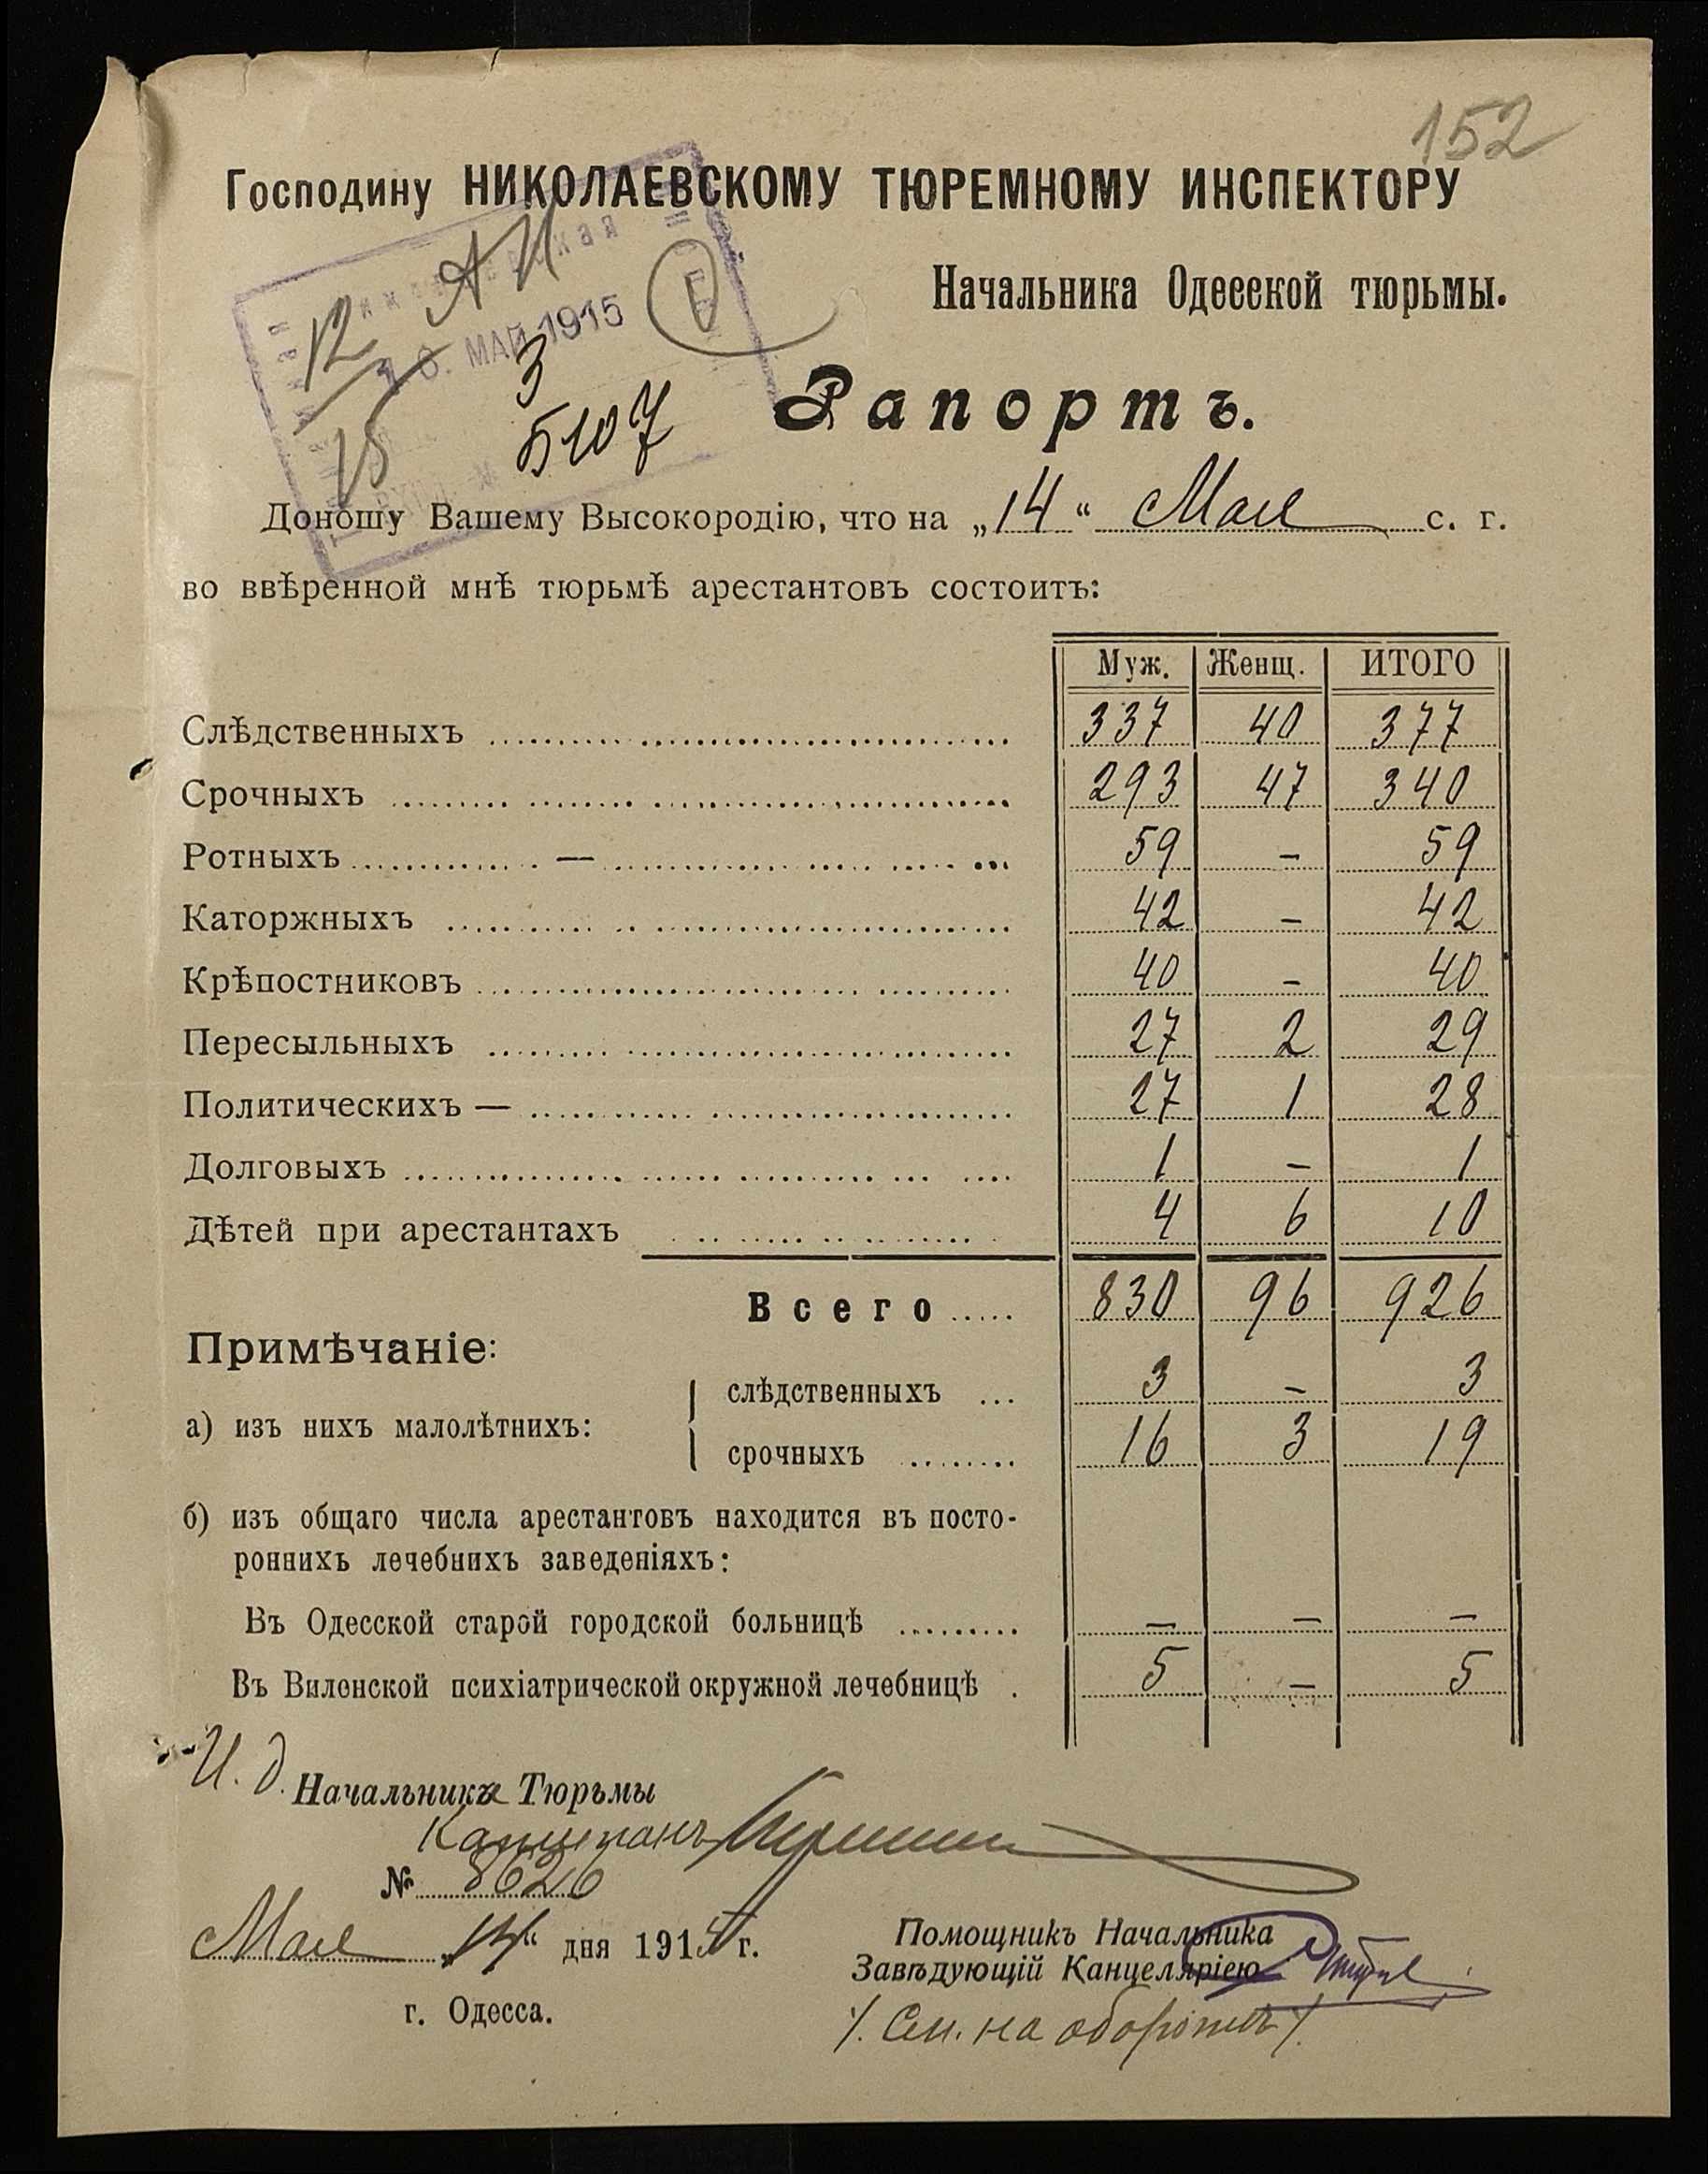 152
Господину НИКОЛАЕВСКОМУ ТЮРЕМНОМУ ИНСПЕКТОРУ
Начальника Одесской тюрьмы.
МАЙ 1915
12
15
3
5107
Рапортъ.
Доношу Вашему Высокородію, что на „14“ Мая с. г.
во ввѣренной мнѣ тюрьмѣ арестантовъ состоитъ:
Муж. Женщ. ИТОГО
Слѣдственныхъ 337 40 377
Срочныхъ 293 47 340
Ротныхъ — 59 - 59
Каторжныхъ 42 - 42
Крѣпостниковъ 40 - 40
Пересыльныхъ 27 2 29
Политическихъ — 27 1 28
Долговыхъ 1 - 1
Дѣтей при арестантахъ 4 6 10
Всего 830 96 926
Примѣчаніе:
а) изъ нихъ малолѣтнихъ:
слѣдственныхъ 3 - 3
срочныхъ 16 3 19
б) изъ общаго числа арестантовъ находится въ посто-
роннихъ лечебнихъ заведеніяхъ:
Въ Одесской старой городской больницѣ — — —
Въ Виленской психіатрической окружной лечебницѣ 5 — 5
И. д. Начальника Тюрьмы
Капитанъ
№ 8626
Мая „14“ дня 1915 г.
г. Одесса.
Помощникъ Начальника
Завѣдующій Канцеляріею
/. См. на оборотѣ /.